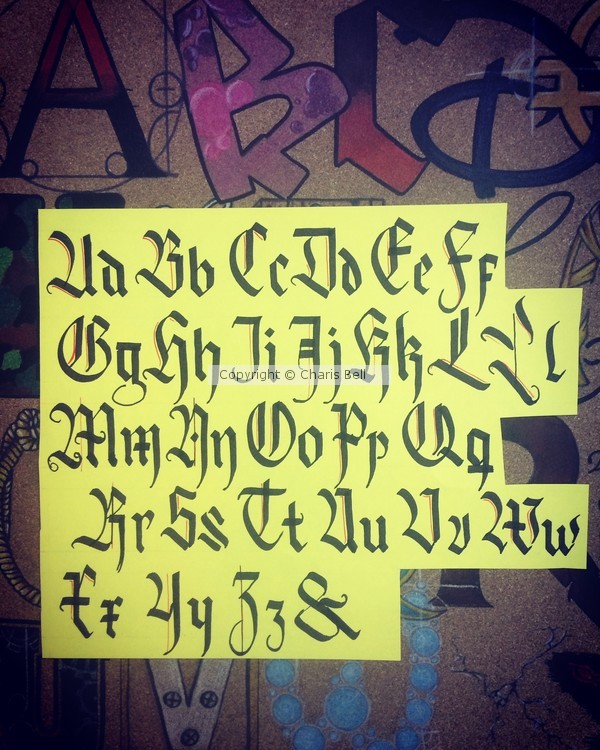 A B C D
Aa Bb Cc Dd Ee Ff
Gg Hh Ii Jj Kk L L l
Copyright © Charis Bell
Mm Nn Oo Pp Qq
Rr Ss Tt Uu Vv Ww
Xx Yy Zz &